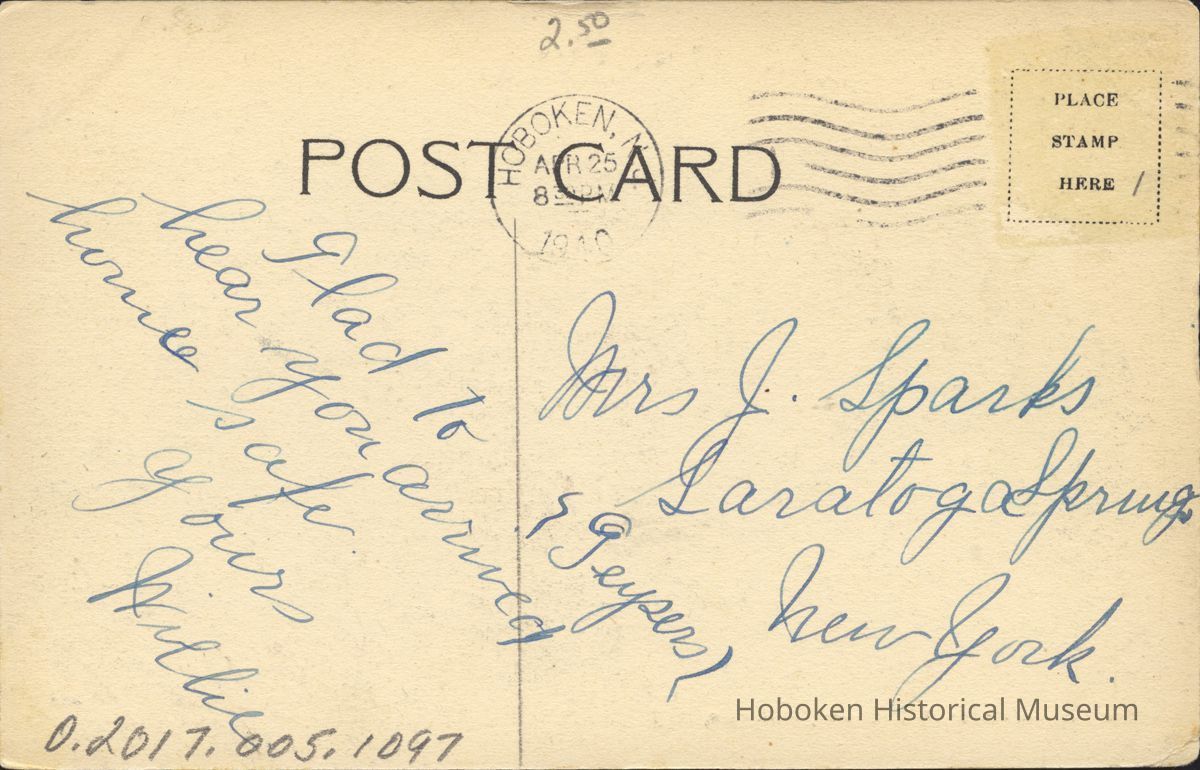 2.50
POST CARD
HOBOKEN, N.J.
APR 25
8 30 PM
1910
PLACE
STAMP
HERE
Glad to
hear you arrived
home safe.
Yours
Willie
Mrs J. Sparks
Saratoga Springs
(Geysers)
New York.
Hoboken Historical Museum
0.2017.005.1097